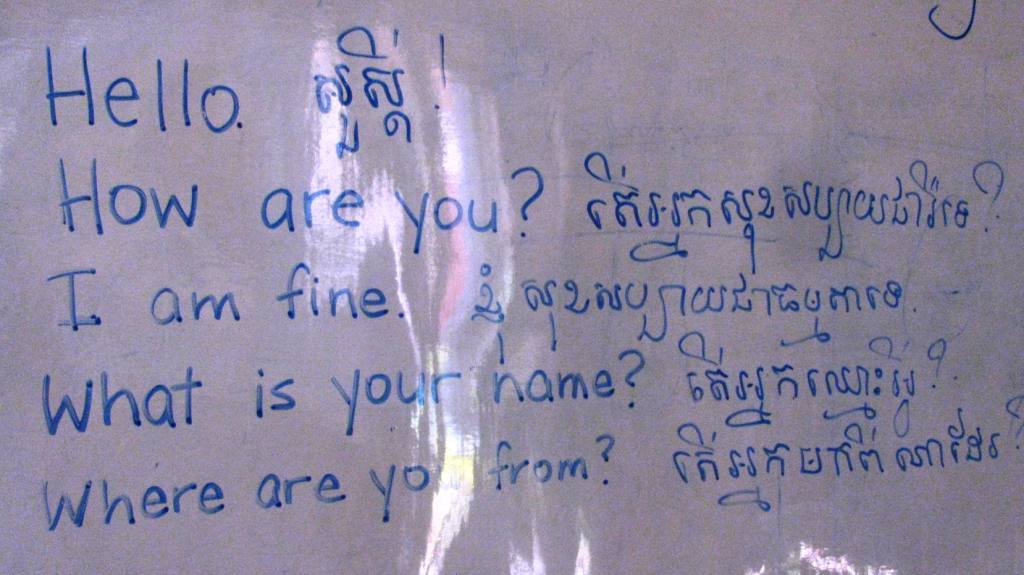 Hello. សួស្តី!
How are you? តើអ្នកសុខសប្បាយជាទេ?
I am fine. ខ្ញុំសុខសប្បាយជាធម្មតាទេ.
What is your name? តើអ្នកឈ្មោះអ្វី?
Where are yo from? តើអ្នកមកពីណាដែរ?